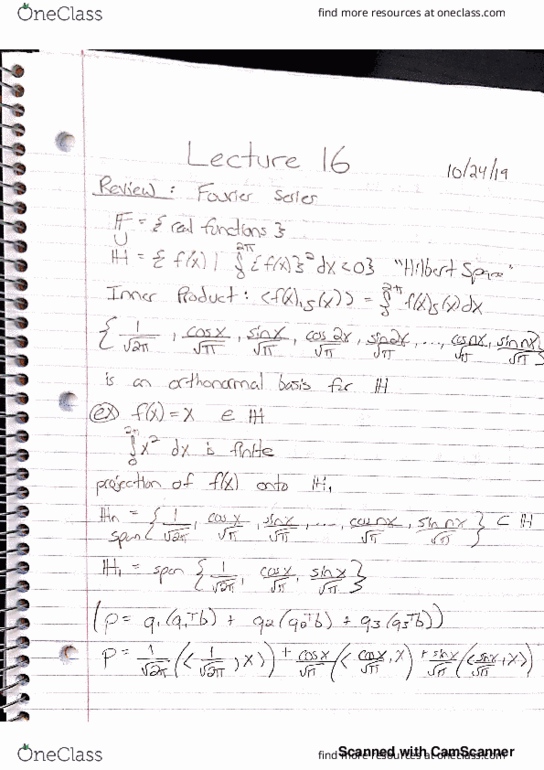 OneClass find more resources at oneclass.com
Lecture 16
10/24/19
Review: Fourier Series
F = { real functions }
∪
H = { f(x) | ∫₀^2π {f(x)}² dx < 0} "Hilbert Space"
Inner Product: <f(x), g(x)> = ∫₀^2π f(x)g(x)dx
{ 1/√2π, cosx/√π, sinx/√π, cos2x/√π, sin2x/√π, ..., cosnx/√π, sinnx/√π }
is an orthonormal basis for H
ex f(x) = x e H
∫₀^2π x² dx is finite
projection of f(x) onto H₁
Hn = span { 1/√2π, cosx/√π, sinx/√π, ..., cosnx/√π, sinnx/√π } ⊂ H
H₁ = span { 1/√2π, cosx/√π, sinx/√π }
(p = q₁(q₁ᵀb) + q₂(q₂ᵀb) + q₃(q₃ᵀb))
P = 1/√2π (<1/√2π, x>) + cosx/√π (<cosx/√π, x>) + sinx/√π (<sinx/√π, x>)
OneClass find more resources at oneclass.com
Scanned with CamScanner